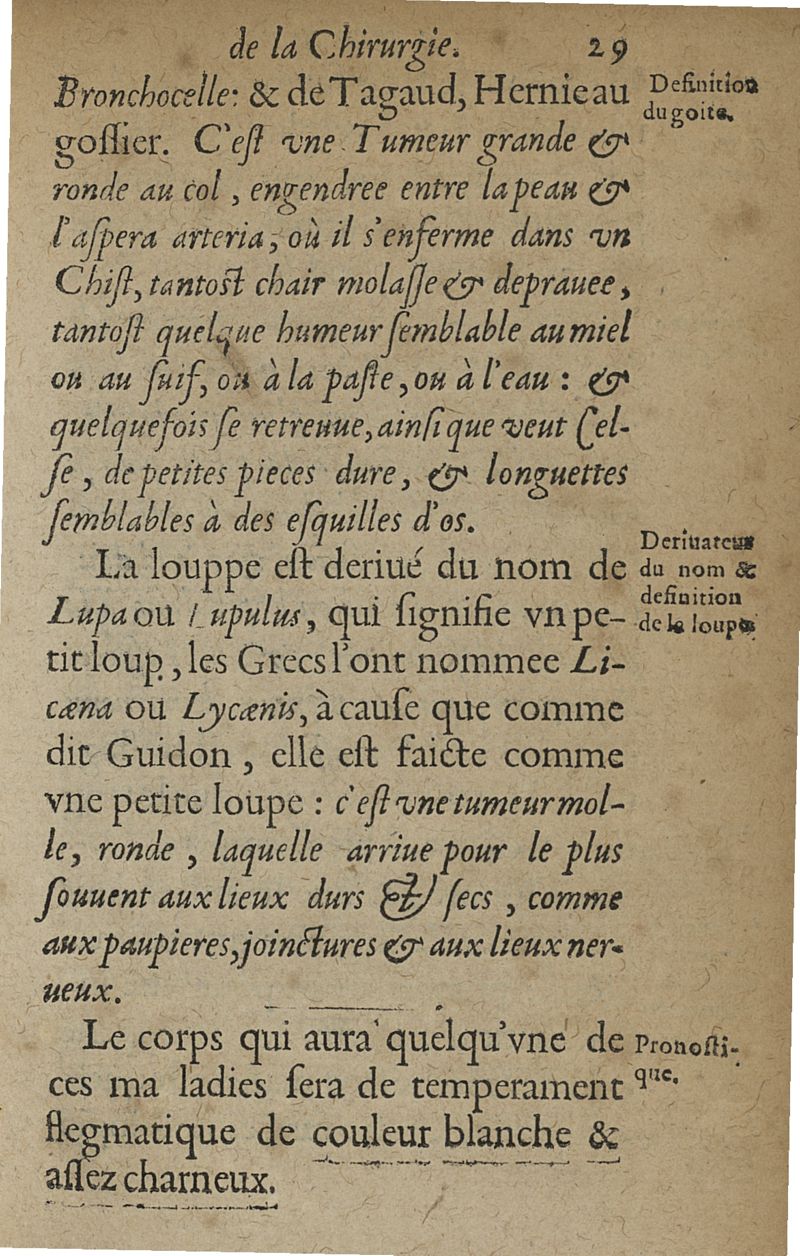 de la Chirurgie. 29
Bronchocelle: & de Tagaud, Hernie au
gossier. C'est vne Tumeur grande &
ronde au col, engendree entre la peau &
l'aspera arteria, où il s'enferme dans vn
Chist, tantost chair molasse & deprauee,
tantost quelque humeur semblable au miel
ou au suif, ou à la paste, ou à l'eau : &
quelquefois se retreuue, ainsi que veut Cel-
se, de petites pieces dure, & longuettes
semblables à des esquilles d'os.
Definition
du goite.
La louppe est deriué du nom de
Lupa ou Lupulus, qui signifie vn pe-
tit loup, les Grecs l'ont nommee Li-
cæna ou Lycænis, à cause que comme
dit Guidon, elle est faicte comme
vne petite loupe : c'est vne tumeur mol-
le, ronde, laquelle arriue pour le plus
souuent aux lieux durs & secs, comme
aux paupieres, joinctures & aux lieux ner-
ueux.
du nom &
definition
de la loupe
Le corps qui aura quelqu'vne de
ces ma ladies sera de temperament
flegmatique de couleur blanche &
assez charneux.
Pronosti-
que.